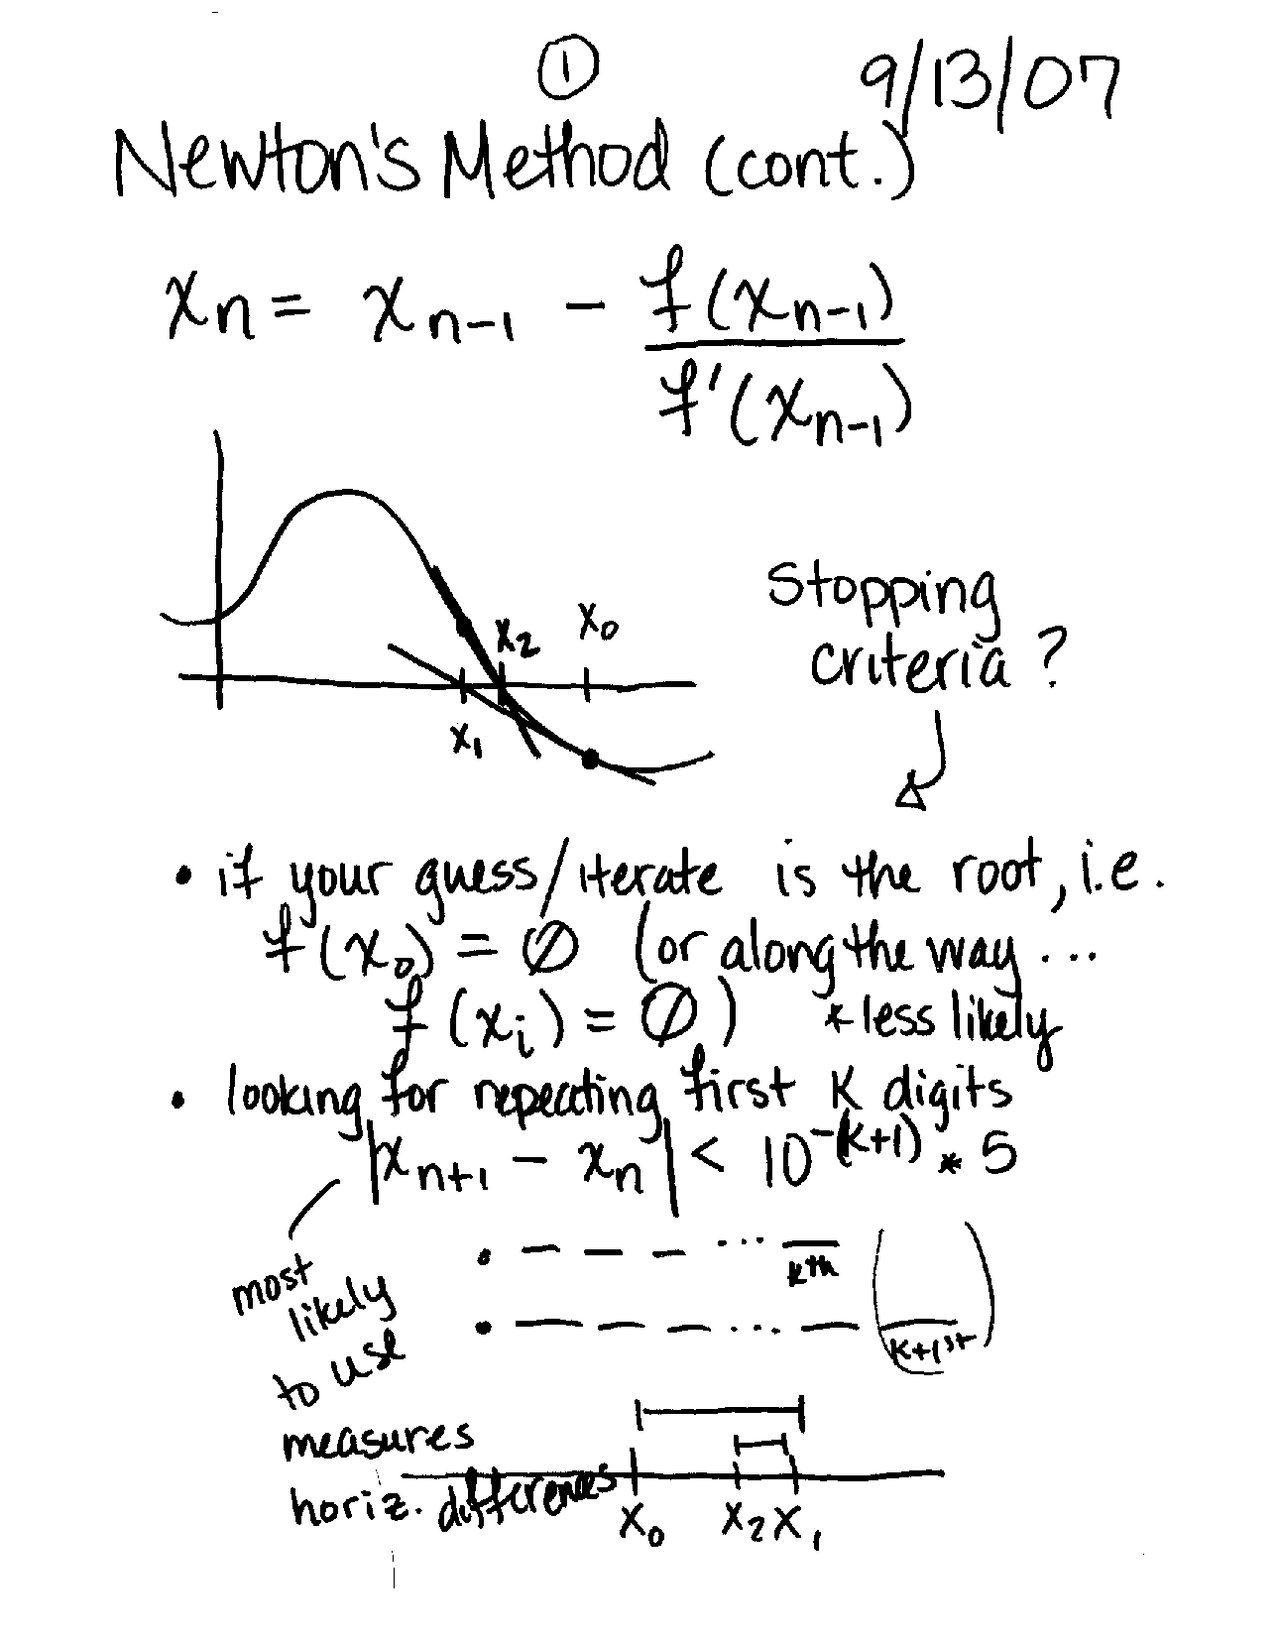 ①
9/13/07
Newton's Method (cont.)
xₙ = xₙ₋₁ - f(xₙ₋₁)
f'(xₙ₋₁)
x₂ x₀
x₁
Stopping
criteria?
• if your guess/iterate is the root, i.e.
f(x₀) = ∅ (or along the way ...
f(xᵢ) = ∅) *less likely
• looking for repeating first K digits
|xₙ₊₁ - xₙ| < 10^-(k+1) * 5
most
likely
to use
measures
horiz. differences
• _ _ _ ... _
kth
• _ _ _ ... _ ( _ )
k+1st
x₀ x₂ x₁